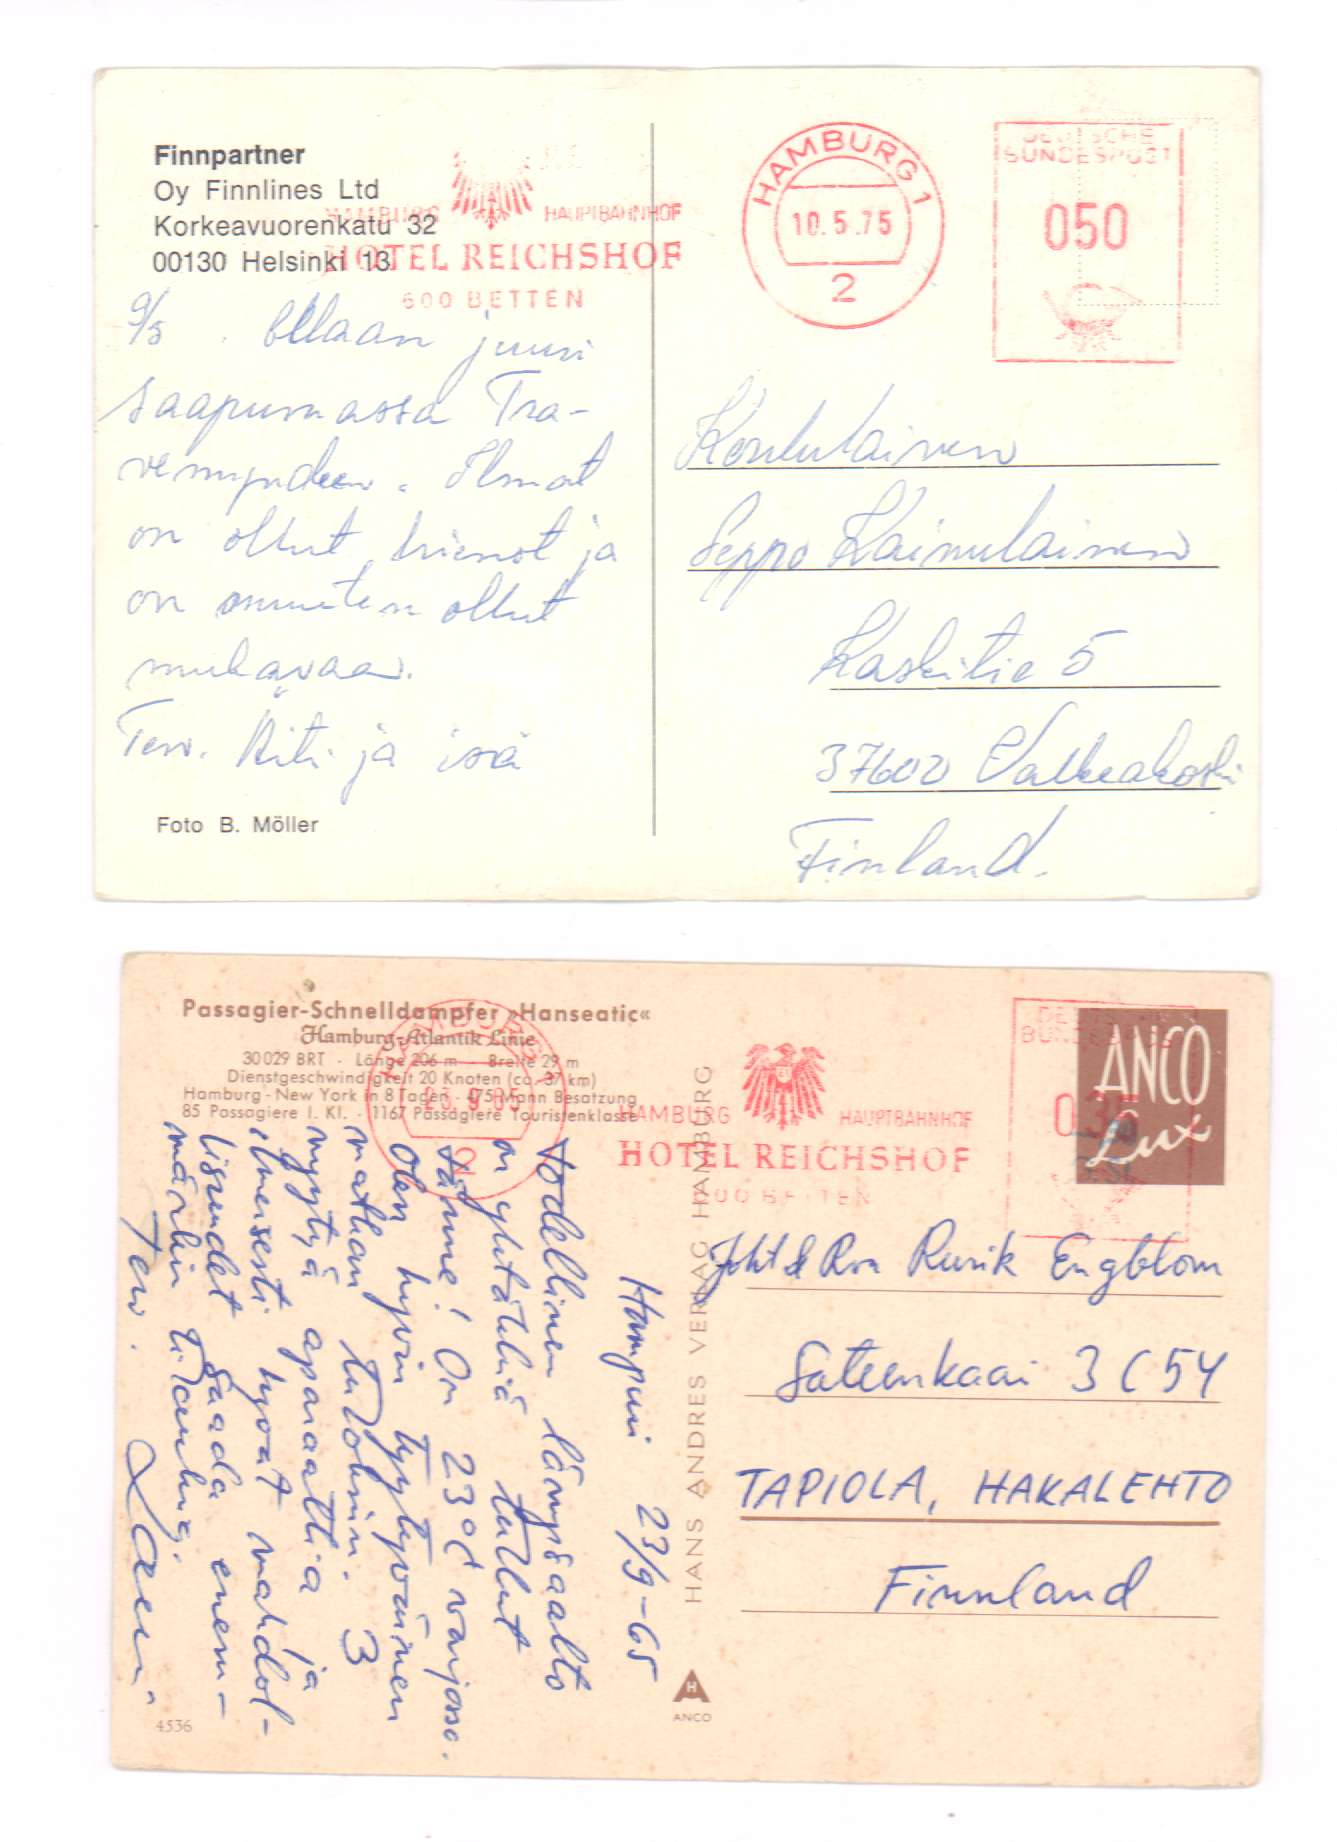 Finnpartner
Oy Finnlines Ltd
Korkeavuorenkatu 32
00130 Helsinki 13
HAMBURG HAUPTBAHNHOF
HOTEL REICHSHOF
600 BETTEN
HAMBURG 1
10.5.75
2
DEUTSCHE
BUNDESPOST
050
9/5. Ollaan juuri
saapumassa Tra-
vemündeen. Ilmat
on ollut hienot ja
on muuten ollut
mukavaa.
Terv. Äiti ja isä
Foto B. Möller
Koululainen
Seppo Kainulainen
Kaskitie 5
37600 Valkeakoski
Finland.
Passagier-Schnelldampfer »Hanseatic«
Hamburg-Atlantik Linie
30029 BRT - Länge 206 m - Breite 29 m
Dienstgeschwindigkeit 20 Knoten (ca. 37 km)
Hamburg - New York in 8 Tagen - 475 Mann Besatzung
85 Passagiere I. Kl. - 1167 Passagiere Touristenklasse
HAMBURG HAUPTBAHNHOF
HOTEL REICHSHOF
600 BETTEN
2
035
ANCO
Lux
Hampuri 23/9-65
Todellinen lämpöaalto
on yhtäkkiä tullut
tänne! On 23°C varjossa.
Olen hyvin tyytyväinen
matkan tuloksiin. 3
myytyä aparaattia ja
ilmeisesti hyvät mahdol-
lisuudet saada enem-
mänkin tilauksia.
Terv.
HANS ANDRES VERLAG HAMBURG
H
ANCO
4536
Rurik Engblom
Sateenkaari 3 C 54
TAPIOLA, HAKALEHTO
Finnland